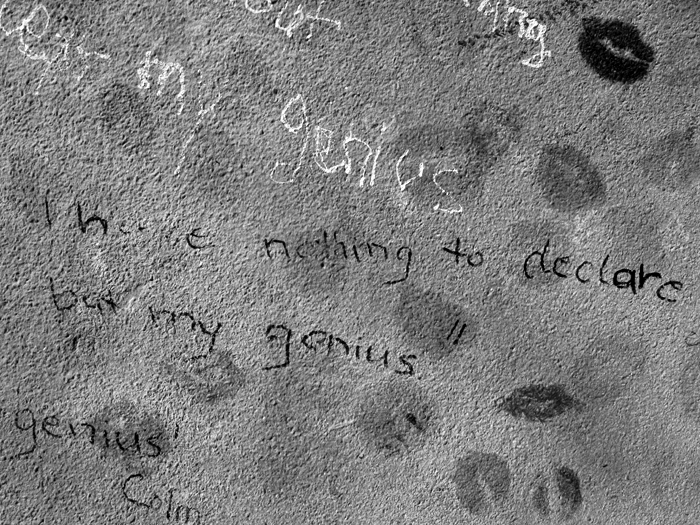 my
genius
I have nothing to declare
but my genius
genius'
Colm